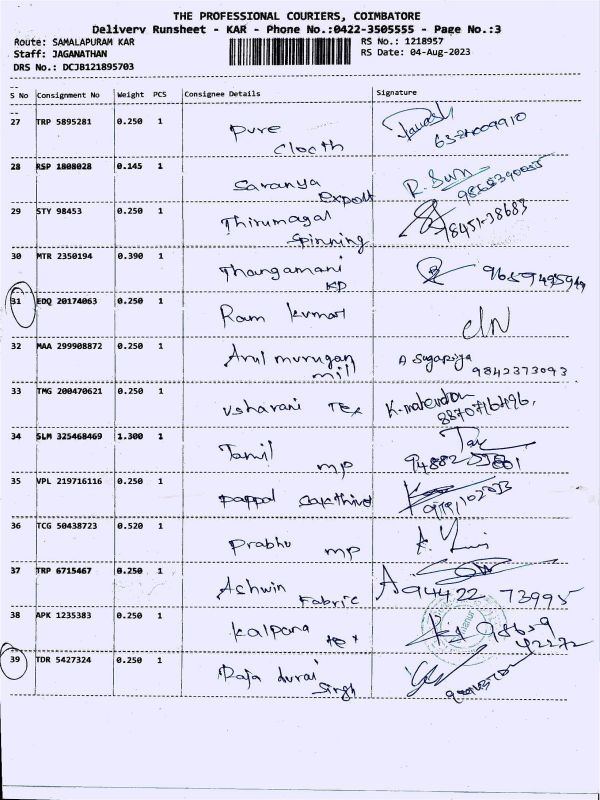 THE PROFESSIONAL COURIERS, COIMBATORE
Delivery Runsheet - KAR - Phone No.:0422-3505555 - Page No.:3
Route: SAMALAPURAM KAR RS No.: 1218957
Staff: JAGANATHAN RS Date: 04-Aug-2023
DRS No.: DCJB121895703
S No Consignment No Weight PCS Consignee Details Signature
27 TRP 5895281 0.250 1 Pure
Clocth
28 RSP 1808028 0.145 1 Saranya R. Sum
Export
29 STY 98453 0.250 1 Thirumagal
Spinning
30 MTR 2350194 0.390 1 Thangamani
KP
31 EDQ 20174063 0.250 1 Ram kumar
32 MAA 299908872 0.250 1 Arul murugan A Sugapiya
mill 9842373093
33 TMG 200470621 0.250 1 Usharani Tex
34 SLM 325468469 1.300 1 Tamil
mp
35 VPL 219716116 0.250 1 Pappal Sakthivel
36 TCG 50438723 0.520 1 Prabhu mp
37 TRP 6715467 0.250 1 Ashwin
Fabric 94422 73995
38 APK 1235383 0.250 1 Kalpana tex 98659
42272
39 TDR 5427324 0.250 1 Raja durai
Singh